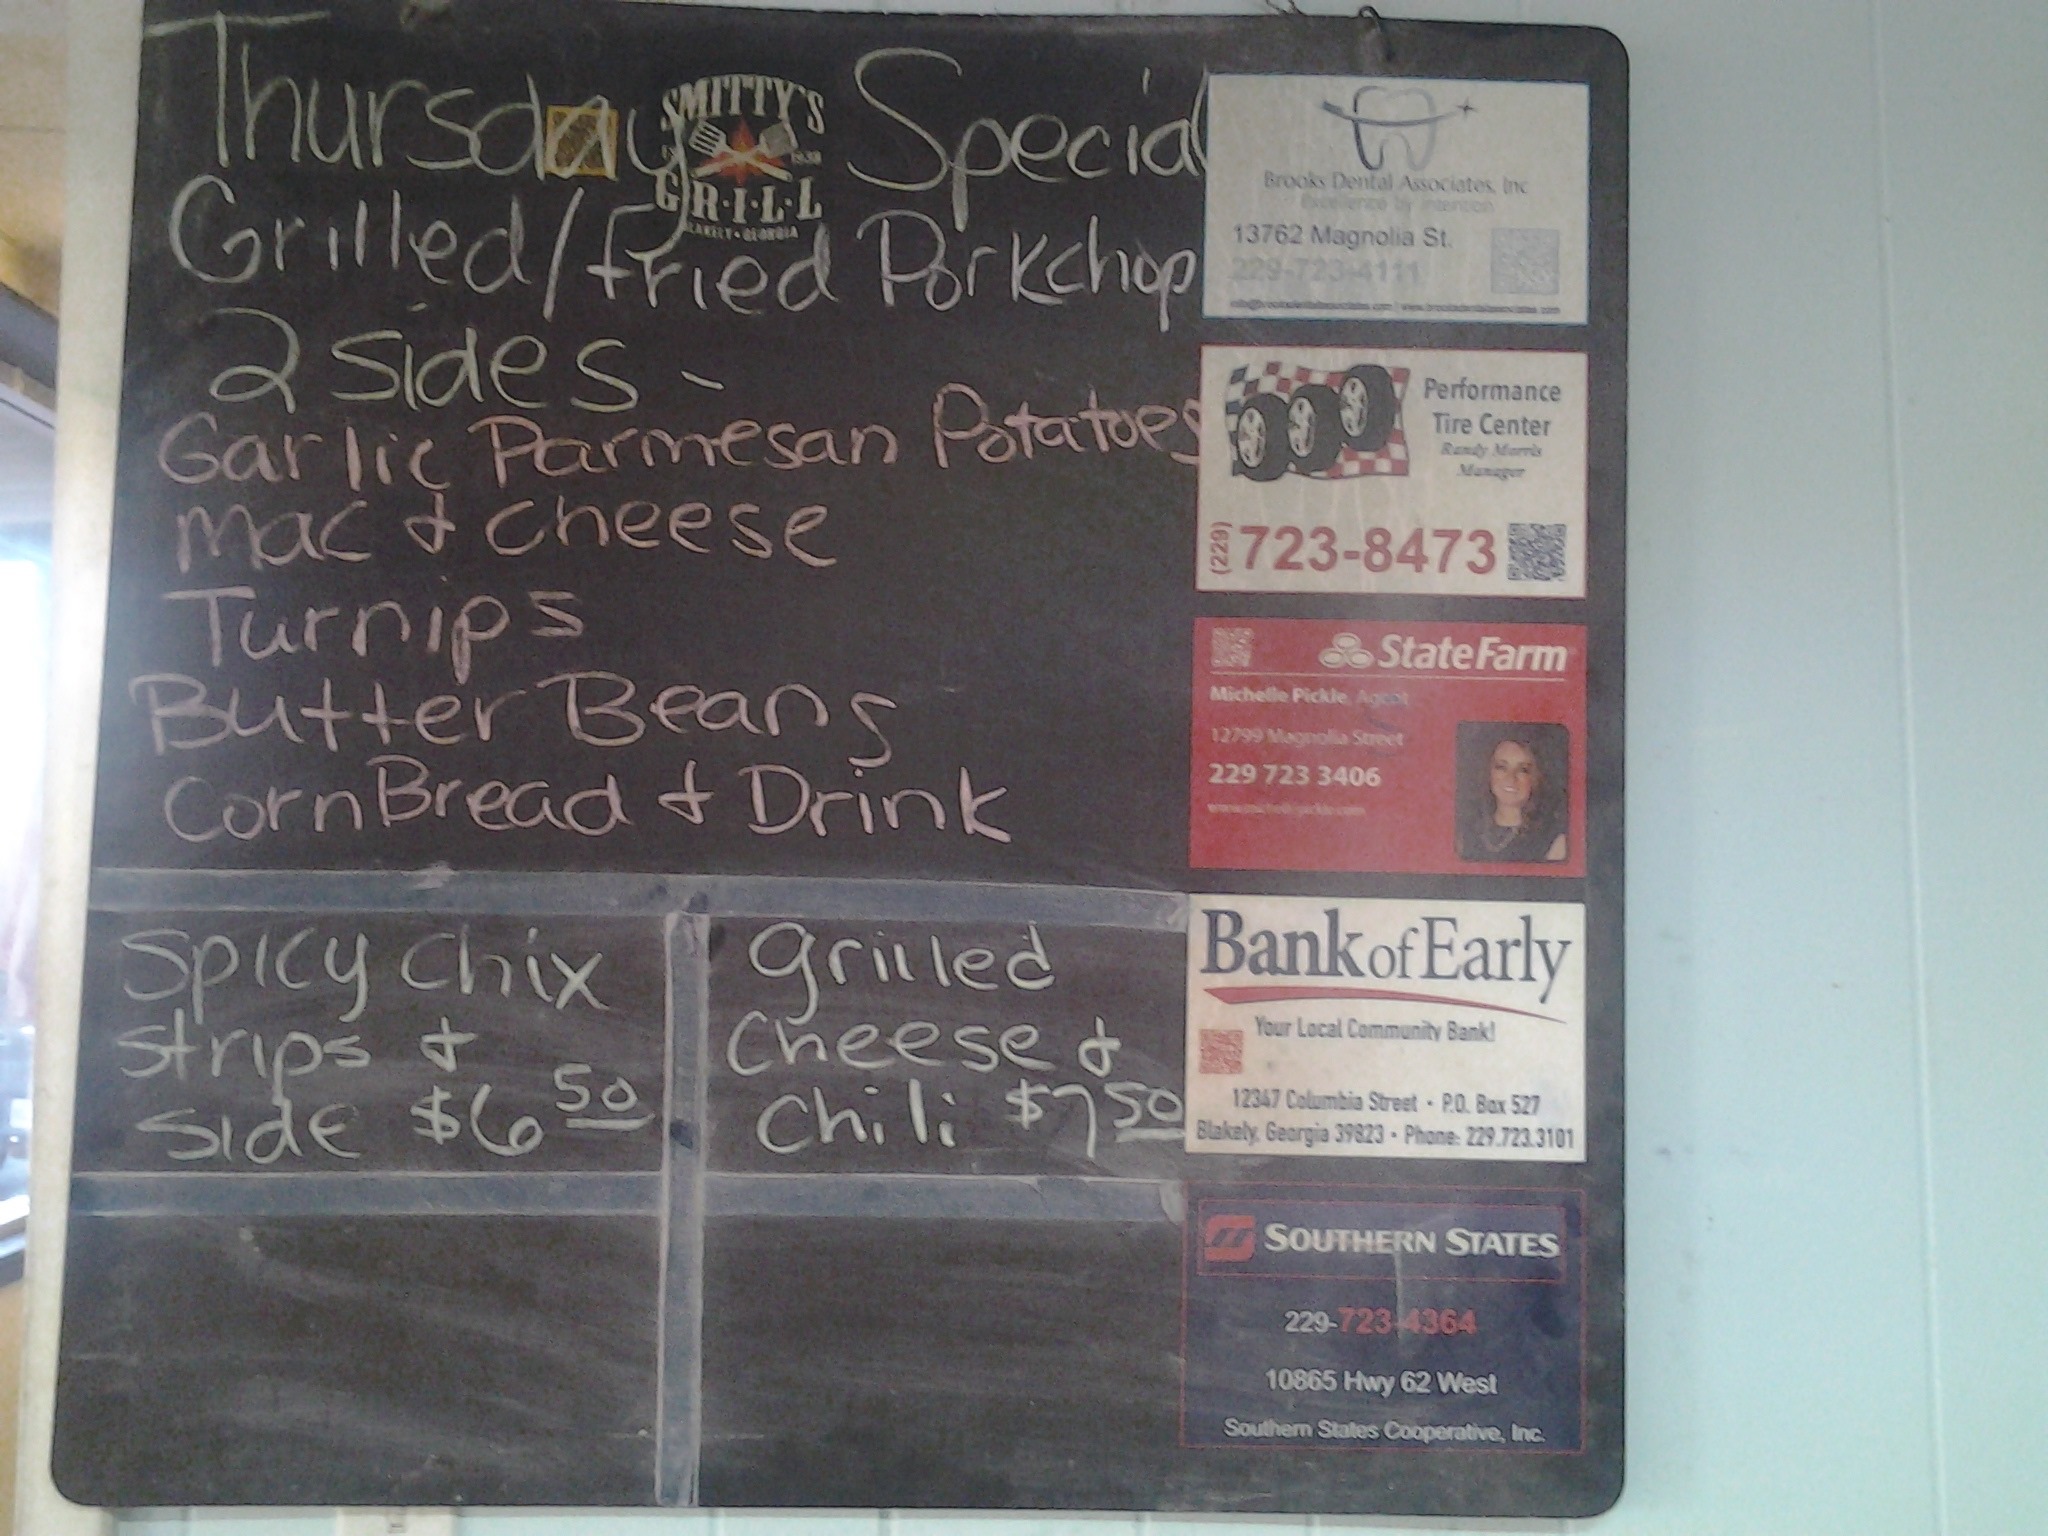 Thursday Special
SMITTY'S
G·R·I·L·L
BLAKELY • GEORGIA
Grilled/Fried Porkchop
2 Sides -
Garlic Parmesan Potatoes
Mac & Cheese
Turnips
Butter Beans
CornBread & Drink
Spicy Chix
Strips &
Side $6 50
Grilled
Cheese &
Chili $7 50
Brooks Dental Associates, Inc
Excellence by Intention
13762 Magnolia St.
229-723-4111
Performance
Tire Center
Randy Morris
Manager
(229) 723-8473
StateFarm
Michelle Pickle, Agent
12799 Magnolia Street
229 723 3406
Bank of Early
Your Local Community Bank!
12347 Columbia Street • P.O. Box 527
Blakely, Georgia 39823 • Phone: 229.723.3101
SOUTHERN STATES
229-723-4364
10865 Hwy 62 West
Southern States Cooperative, Inc.